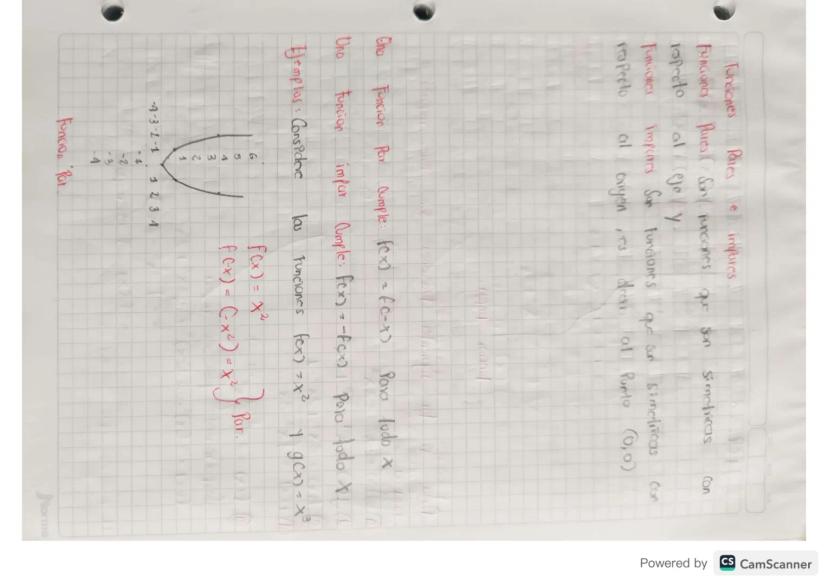 Funciones Pares e impares
Funciones Pares: Son funciones que son simetricas con
respecto al eje y
Funciones impares Son funciones que son simetricas con
respecto al origen, es decir al Punto (0,0)
Una Funcion Par Cumple: f(x) = f(-x) Para todo x
Una funcion impar Cumple: f(x) = -f(x) Para todo x
Ejemplos: Considere las funciones f(x) = x² y g(x) = x³
f(x) = x²
f(-x) = (-x²) = x² } Par.
6
5
4
3
2
1
-4 -3 -2 -1 1 2 3 4
-1
-2
-3
-4
Funcion Par.
Norma
Powered by CS CamScanner